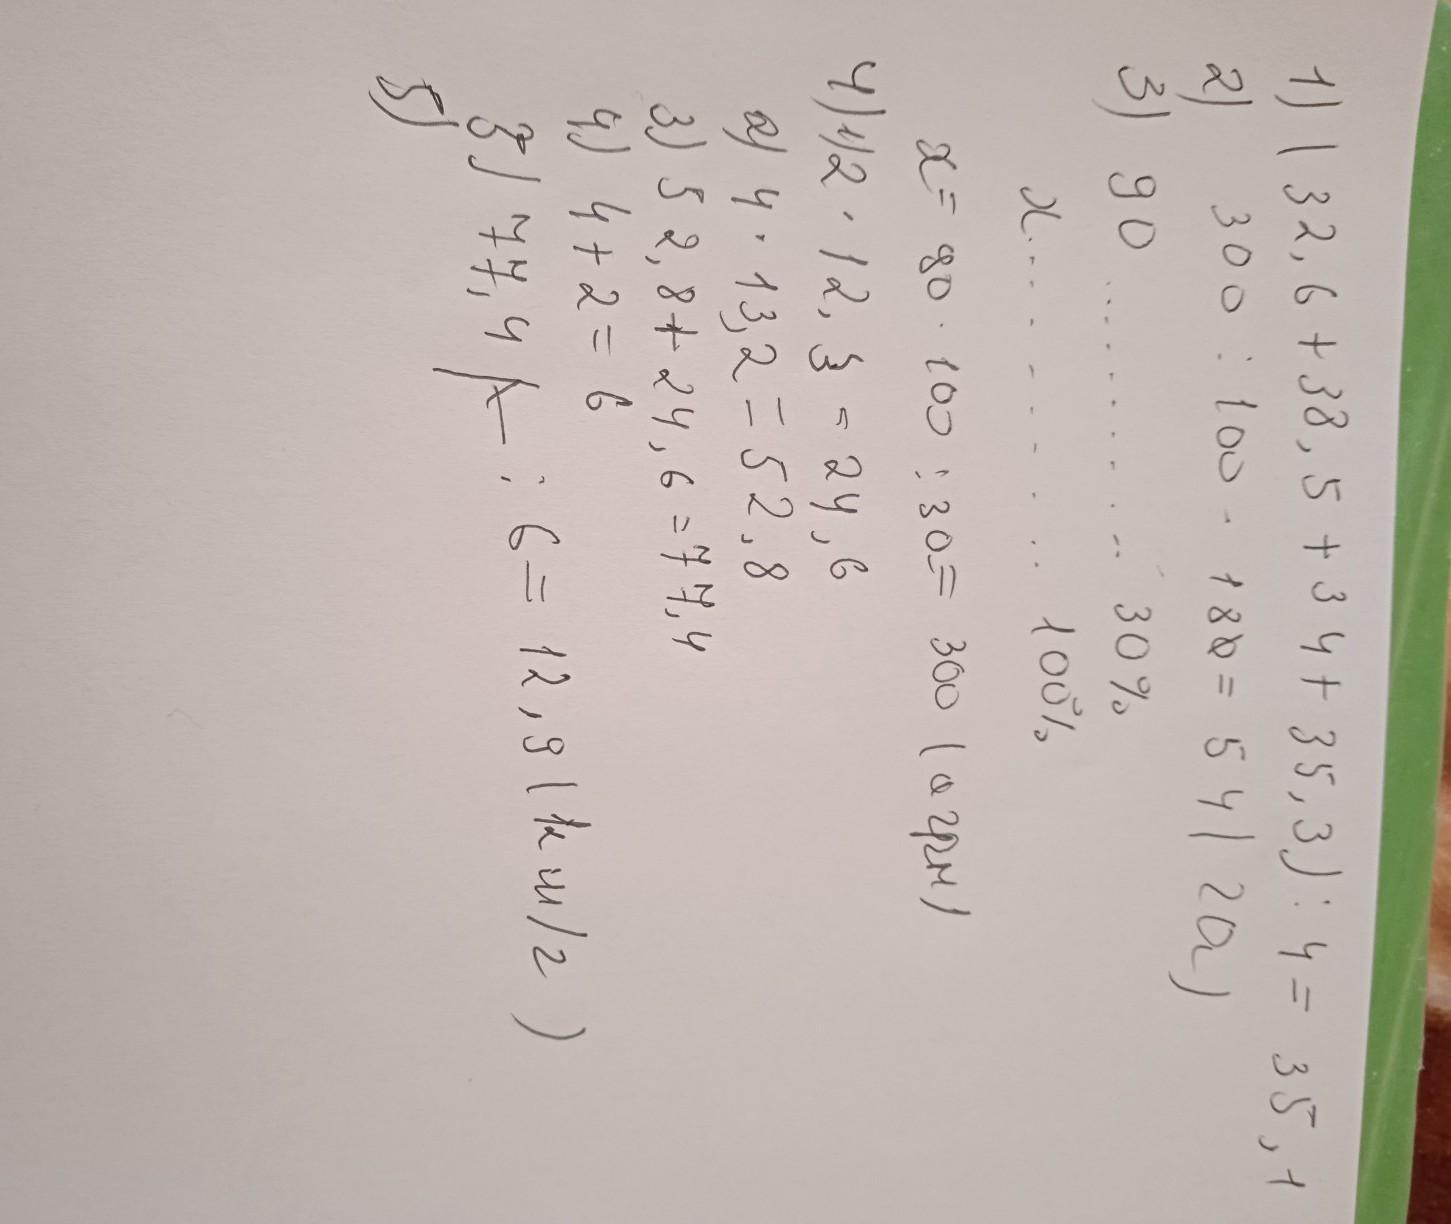 1) (32,6+38,5+34+35,3):4=35,1
2) 300:100·18=54(га)
3) 90.........30%
x........100%
x=90·100:30=300(грн)
4) 1) 2·12,3=24,6
2) 4·13,2=52,8
3) 52,8+24,6=77,4
4) 4+2=6
5) 77,4:6=12,9(км/г)
5)